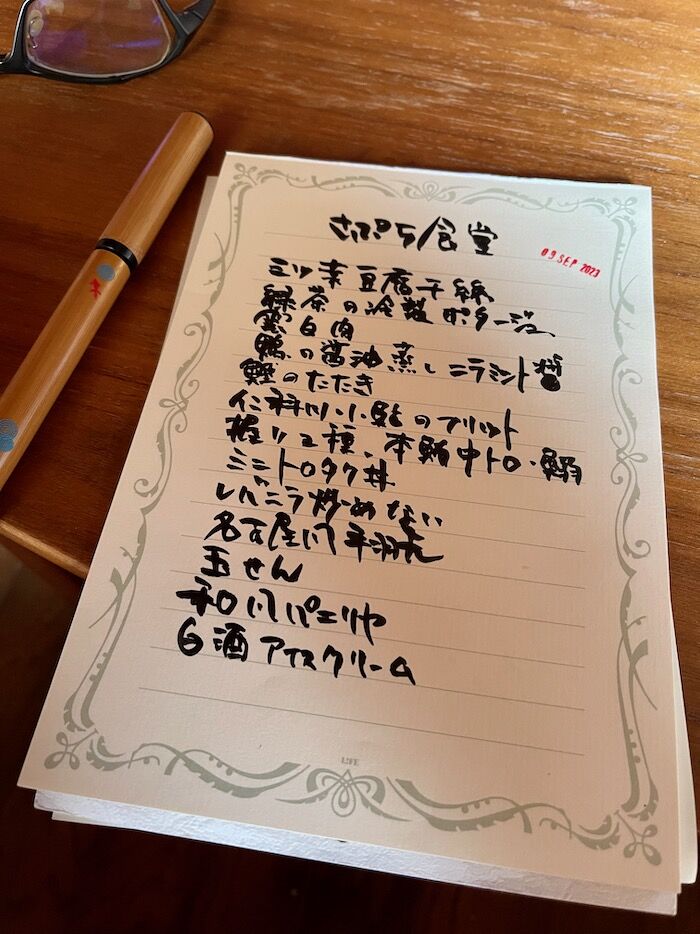 さぷち食堂
09 SEP 2023
ミツ素豆腐干絲
緑茶の冷製ポタージュ
雲白肉
鴨の醤油蒸しニラミント醤
鰹のたたき
仁科川・小鮎のフリット
握り二種、本鮪中トロ・鰯
ミニトロタク丼
レバニラ炒めない
名古屋風手羽先
玉せん
和風パエリヤ
白酒アイスクリーム
LIFE